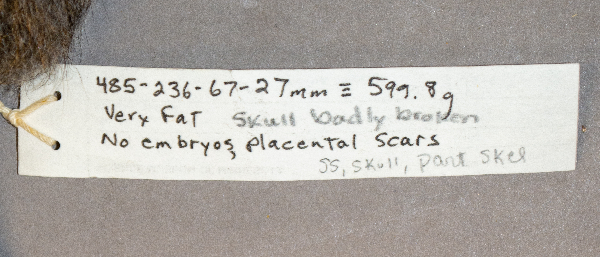 485-236-67-27mm ≡ 599.8g
Very Fat Skull badly broken
No embryos, placental Scars
SS, skull, part skel